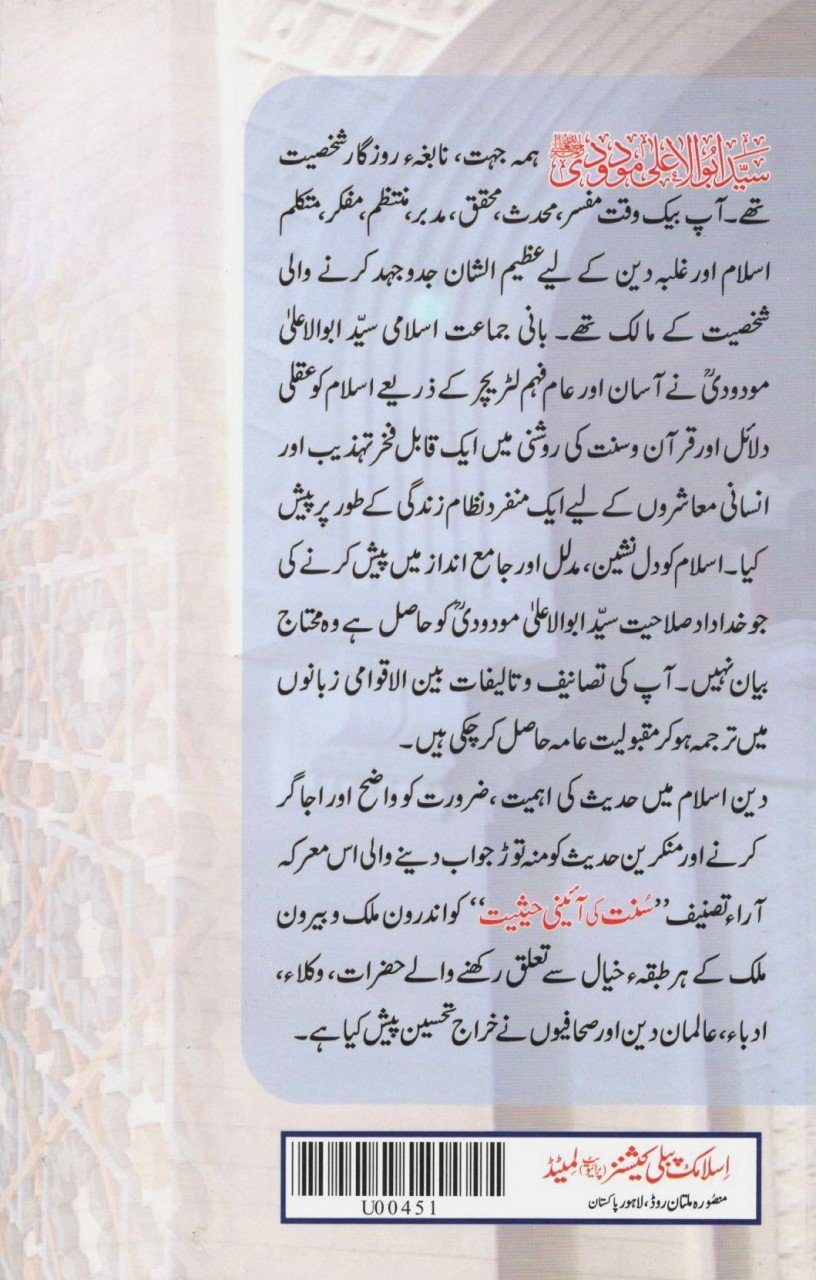 سیّد ابوالاعلیٰ مودودیؒ ہمہ جہت، نابغہء روزگار شخصیت
تھے۔ آپ بیک وقت مفسر، محدث، محقق، مدبر، منتظم، مفکر، متکلم
اسلام اور غلبہ دین کے لیے عظیم الشان جدوجہد کرنے والی
شخصیت کے مالک تھے۔ بانی جماعت اسلامی سیّد ابوالاعلیٰ
مودودیؒ نے آسان اور عام فہم لٹریچر کے ذریعے اسلام کو عقلی
دلائل اور قرآن وسنت کی روشنی میں ایک قابل فخر تہذیب اور
انسانی معاشروں کے لیے ایک منفرد نظام زندگی کے طور پر پیش
کیا۔ اسلام کو دل نشین، مدلل اور جامع انداز میں پیش کرنے کی
جو خداداد صلاحیت سیّد ابوالاعلیٰ مودودیؒ کو حاصل ہے وہ محتاج
بیان نہیں۔ آپ کی تصانیف و تالیفات بین الاقوامی زبانوں
میں ترجمہ ہو کر مقبولیت عامہ حاصل کر چکی ہیں۔
دین اسلام میں حدیث کی اہمیت، ضرورت کو واضح اور اجاگر
کرنے اور منکرین حدیث کو منہ توڑ جواب دینے والی اس معرکہ
آراء تصنیف ”سُنت کی آئینی حیثیت“ کو اندرون ملک و بیرون
ملک کے ہر طبقہء خیال سے تعلق رکھنے والے حضرات، وکلاء،
ادباء، عالمان دین اور صحافیوں نے خراج تحسین پیش کیا ہے۔
اسلامک پبلی کیشنز (پرائیوٹ) لمیٹڈ
منصورہ ملتان روڈ، لاہور پاکستان
U00451